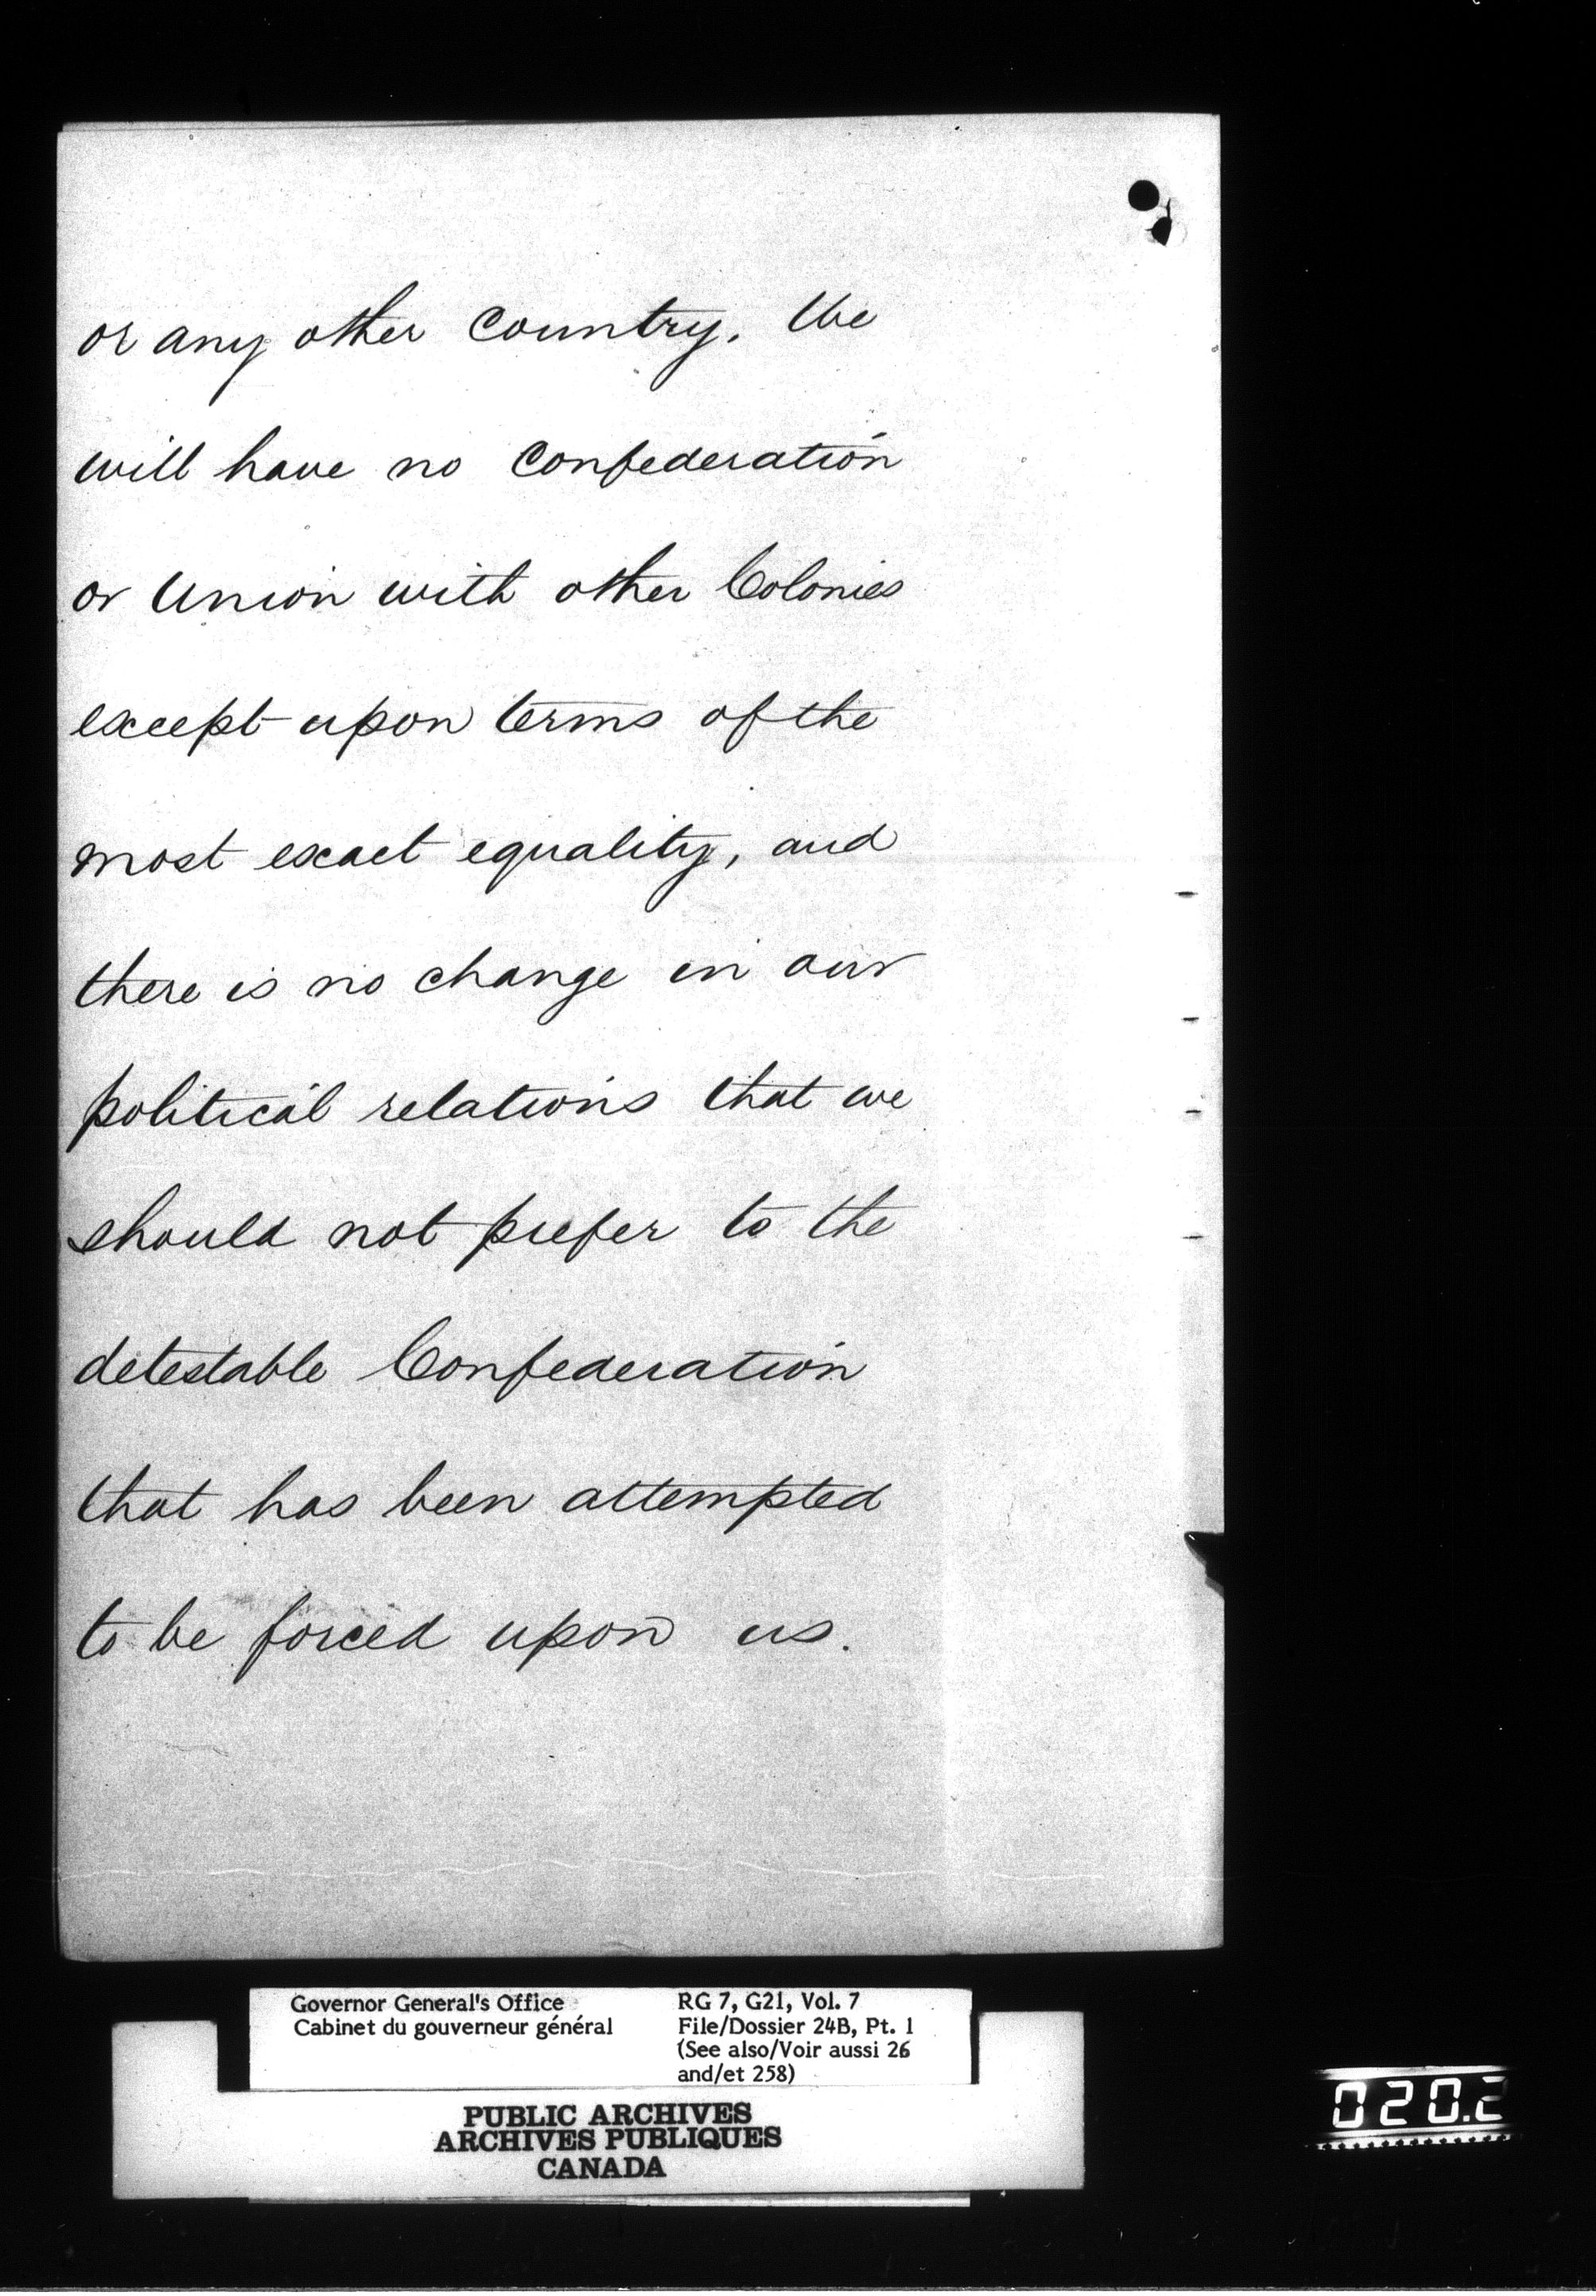 or any other Country. We
will have no Confederation
or Union with other Colonies
except upon terms of the
most exact equality, and
there is no change in our
political relations that we
should not prefer to the
detestable Confederation
that has been attempted
to be forced upon us.
Governor General's Office
Cabinet du gouverneur général
RG 7, G21, Vol. 7
File/Dossier 24B, Pt. 1
(See also/Voir aussi 26
and/et 258)
PUBLIC ARCHIVES
ARCHIVES PUBLIQUES
CANADA
020.2